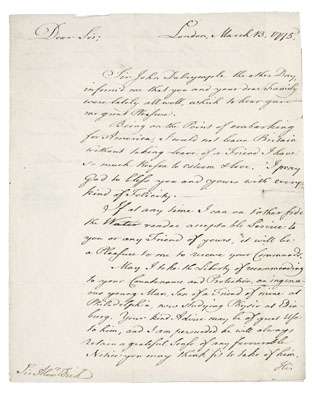 Dear Sir,
London, March 13. 1775.
Sir John Dalrymple the other Day,
inform'd me that you and your dear Family
were lately all well, which to hear gave
me great Pleasure.
Being on the Point of embarking
for America, I would not leave Britain
without taking leave of a Friend I have
so much Reason to esteem & love. I pray
God to bless you and yours with every
kind of Felicity.
If at any time I can on t'other side
the Water render acceptable Service to
you or any Friend of yours, it will be
a Pleasure to me to receive your Commands.
May I take the Liberty of recommending
to your Countenance and Protection, an ingeni-
ous young Man, Son of a Friend of mine at
Philadelphia, now Studying Physic at Edin-
burg. Your kind Advice may be of great Use
to him, and I am persuaded he will always
retain a grateful Sense of any favourable
Notice you may think fit to take of him.
His
Sir Alexr. Dick